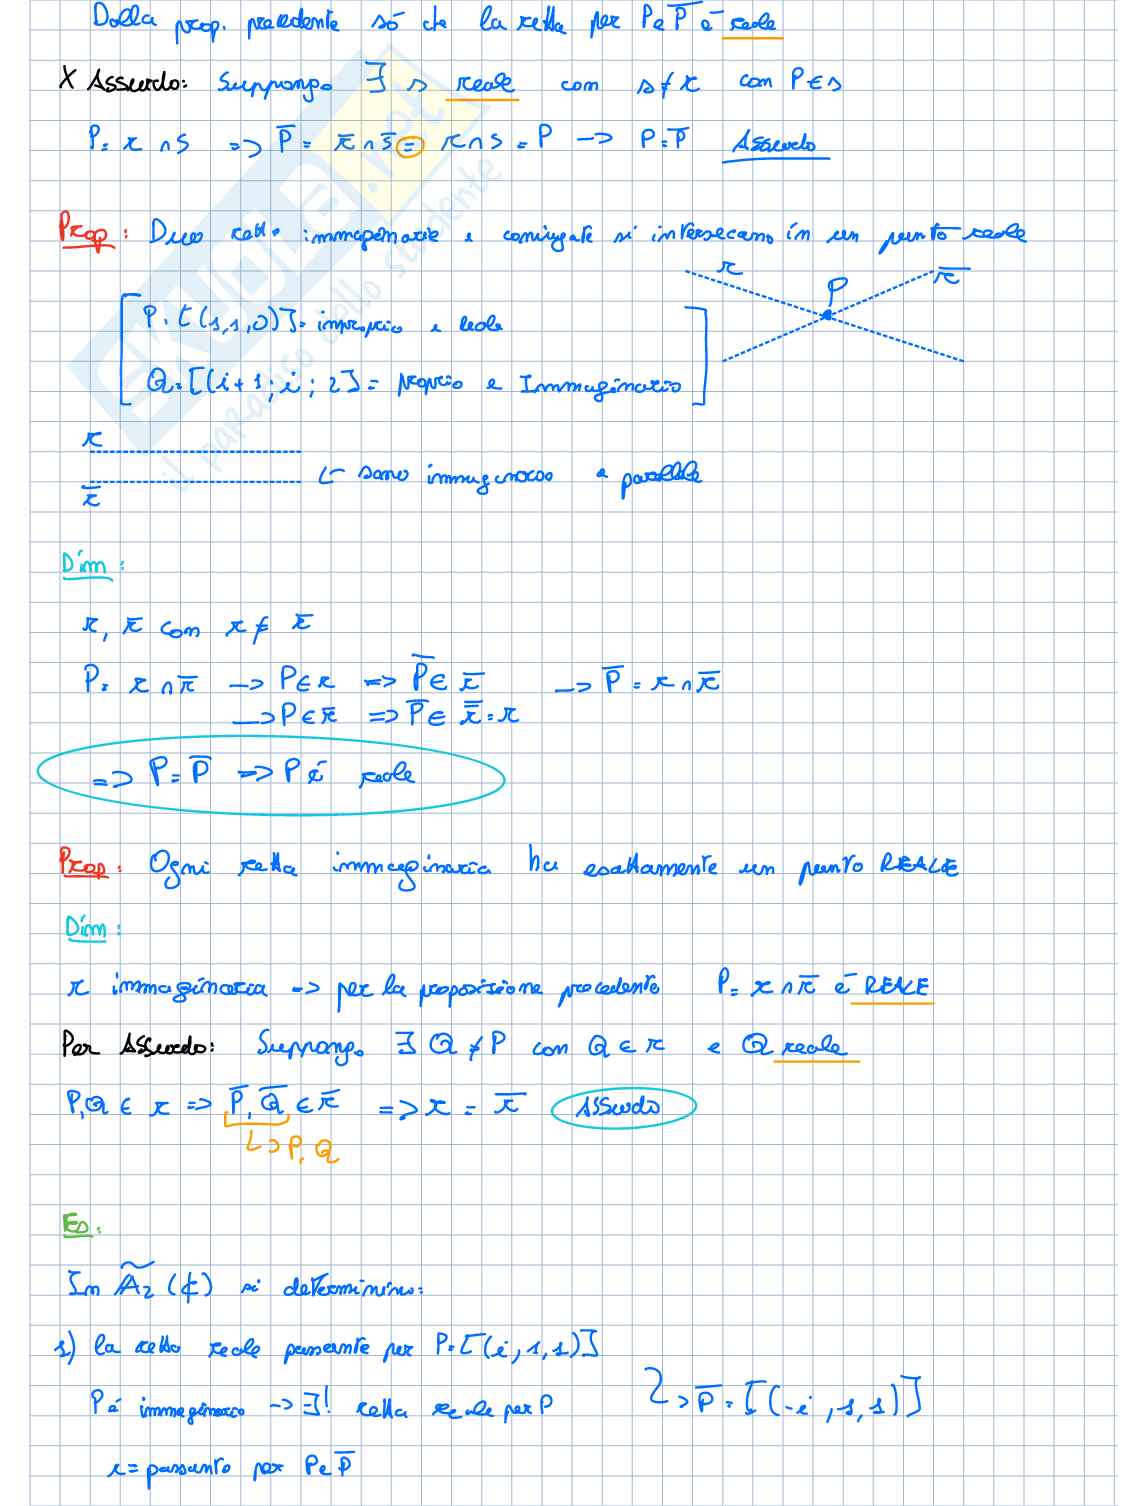 Dalla prop. precedente so che la retta per P e P̅ è reale
X Assurdo: Suppongo ∃ s reale con s ≠ r con P ∈ s
P = r ∩ s => P̅ = r̅ ∩ s̅ = r ∩ s = P -> P = P̅ Assurdo
Prop: Due rette immaginarie e coniugate si intersecano in un punto reale
r r̅ P
P = [(1,1,0)] = improprio e reale
Q = [(i+1; i; 2] = proprio e Immaginario
r
r̅ <- sono immaginarie e parallele
Dim:
r, r̅ con r ≠ r̅
P = r ∩ r̅ -> P ∈ r => P̅ ∈ r̅ -> P̅ = r ∩ r̅
-> P ∈ r̅ => P̅ ∈ r̿ = r
=> P = P̅ => P è reale
Prop: Ogni retta immaginaria ha esattamente un punto REALE
Dim:
r immaginaria => per la proposizione precedente P = r ∩ r̅ è REALE
Per Assurdo: Suppongo ∃ Q ≠ P con Q ∈ r e Q reale
P, Q ∈ r => P̅, Q̅ ∈ r̅ => r = r̅ Assurdo
-> P, Q
Es.
In Ã₂(ℂ) si determinino:
1) la retta reale passante per P = [(i, 1, 1)]
P è immaginario -> ∃! retta reale per P -> P̅ = [(-i, 1, 1)]
r = passante per P e P̅
SKUOLA.net
il paradiso dello studente